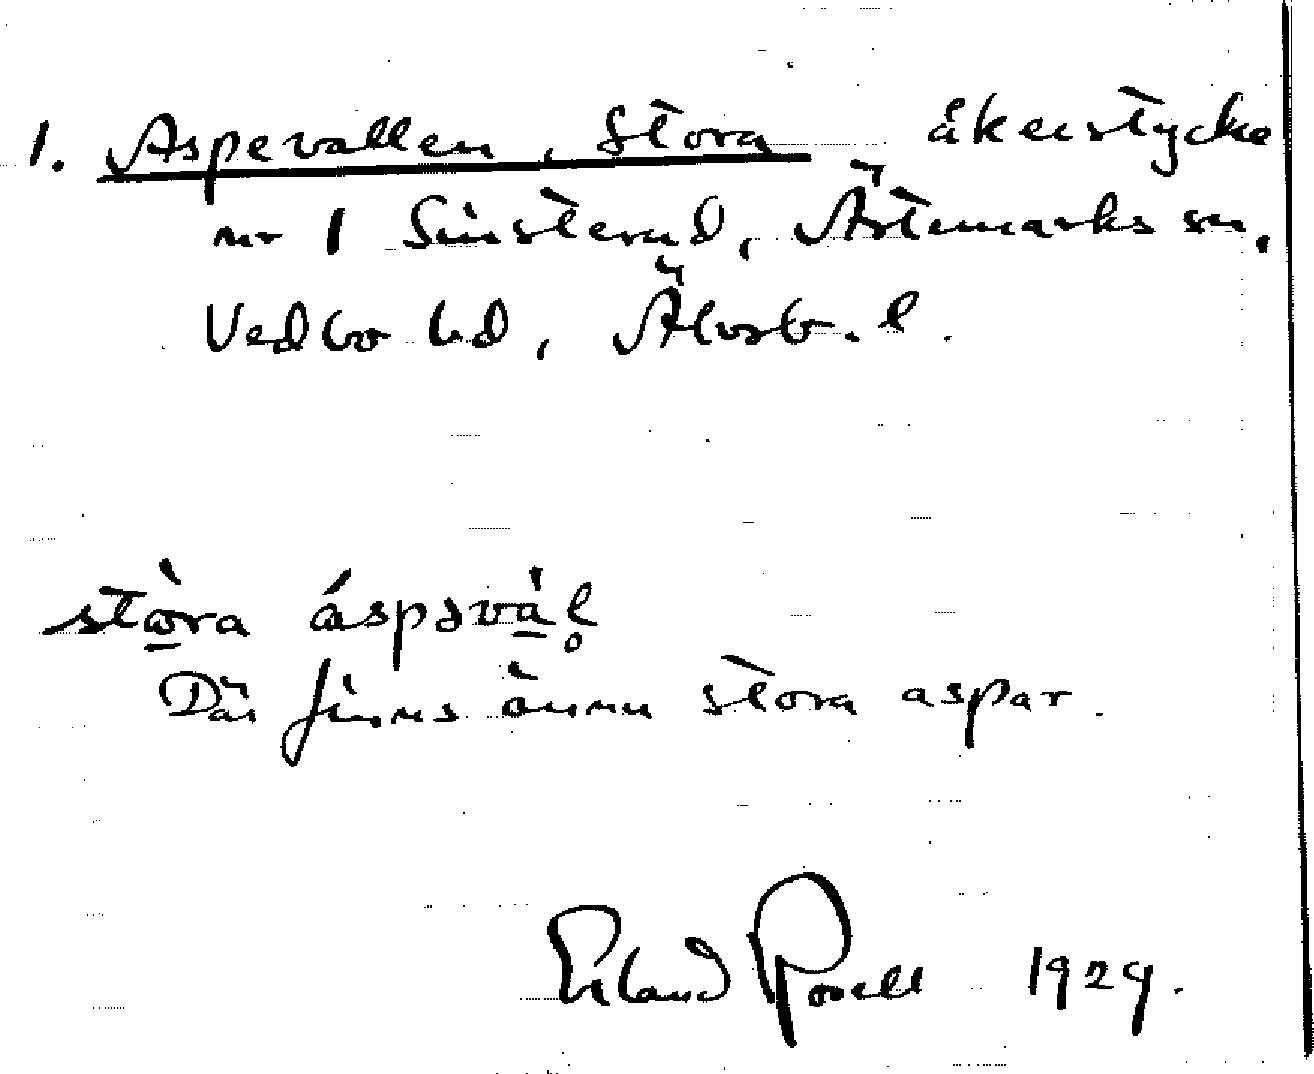 1. Aspevallen, Stora åkerstycke
nr 1 Sinsterud, Ärtemarks sn,
Vedbo hd, Älvsb. l.
stòra áspəvàl̥
Där finns ännu stora aspar.
Erland Rosell 1929.